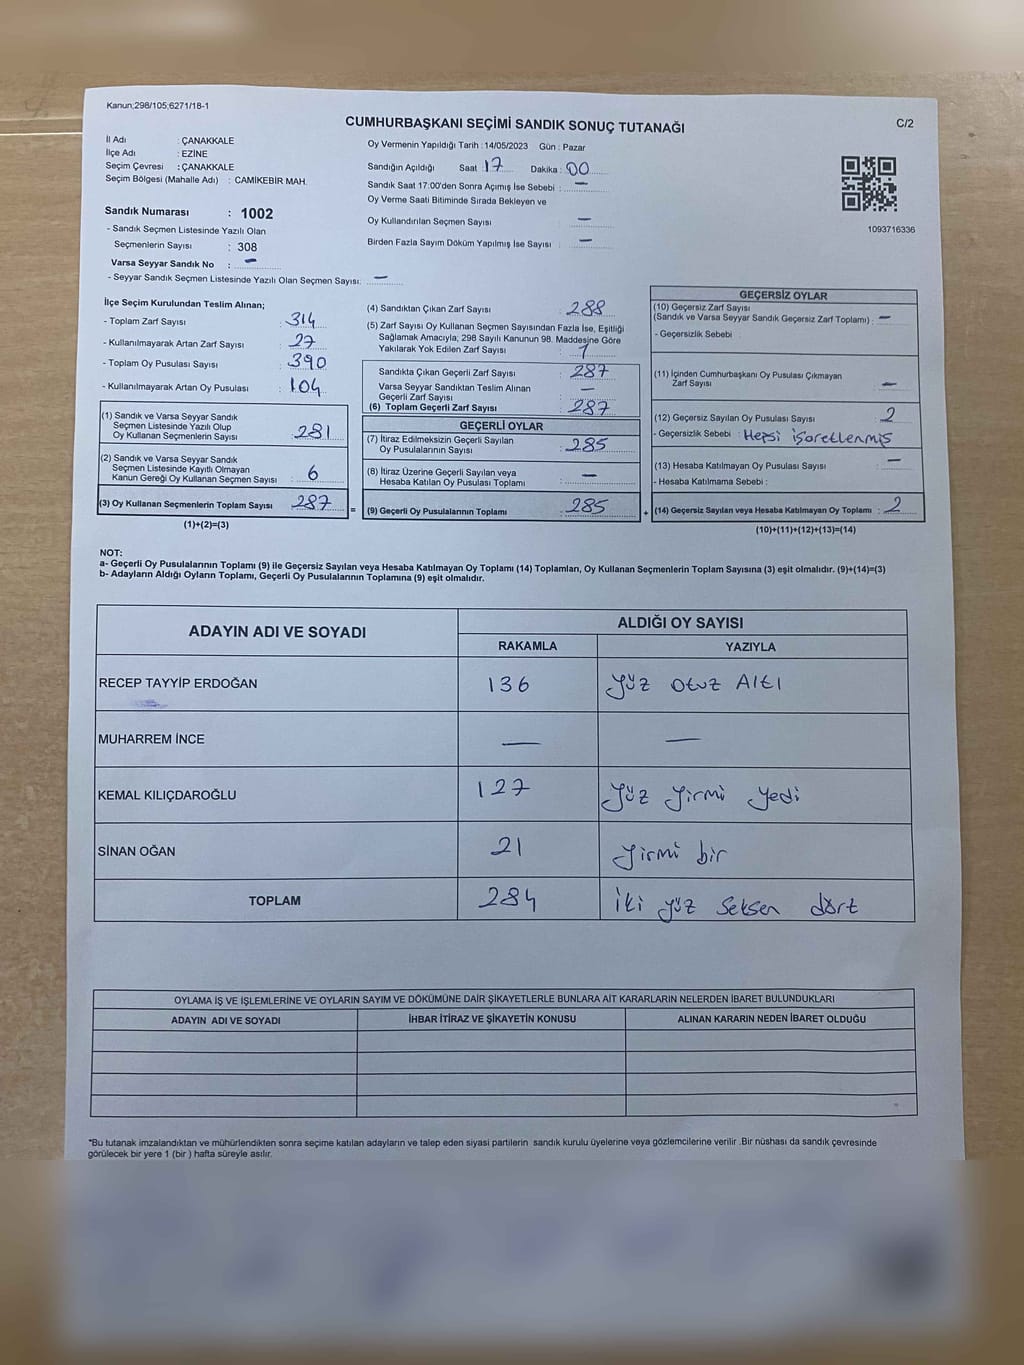 Kanun;298/105;6271/18-1
C/2
CUMHURBAŞKANI SEÇİMİ SANDIK SONUÇ TUTANAĞI
İl Adı : ÇANAKKALE
İlçe Adı : EZİNE
Seçim Çevresi : ÇANAKKALE
Seçim Bölgesi (Mahalle Adı) : CAMİKEBİR MAH.
Sandık Numarası : 1002
- Sandık Seçmen Listesinde Yazılı Olan
Seçmenlerin Sayısı : 308
Varsa Seyyar Sandık No : -
- Seyyar Sandık Seçmen Listesinde Yazılı Olan Seçmen Sayısı: -
Oy Vermenin Yapıldığı Tarih : 14/05/2023 Gün : Pazar
Sandığın Açıldığı Saat 17 Dakika : 00
Sandık Saat 17:00'den Sonra Açımış İse Sebebi : -
Oy Verme Saati Bitiminde Sırada Bekleyen ve
Oy Kullandırılan Seçmen Sayısı -
Birden Fazla Sayım Döküm Yapılmış İse Sayısı : -
1093716336
İlçe Seçim Kurulundan Teslim Alınan;
- Toplam Zarf Sayısı : 314
- Kullanılmayarak Artan Zarf Sayısı : 27
- Toplam Oy Pusulası Sayısı : 390
- Kullanılmayarak Artan Oy Pusulası : 104
(1) Sandık ve Varsa Seyyar Sandık
Seçmen Listesinde Yazılı Olup
Oy Kullanan Seçmenlerin Sayısı : 281
(2) Sandık ve Varsa Seyyar Sandık
Seçmen Listesinde Kayıtlı Olmayan
Kanun Gereği Oy Kullanan Seçmen Sayısı : 6
(3) Oy Kullanan Seçmenlerin Toplam Sayısı : 287
(1)+(2)=(3)
=
(4) Sandıktan Çıkan Zarf Sayısı : 288
(5) Zarf Sayısı Oy Kullanan Seçmen Sayısından Fazla İse, Eşitliği
Sağlamak Amacıyla; 298 Sayılı Kanunun 98. Maddesine Göre
Yakılarak Yok Edilen Zarf Sayısı : 1
Sandıkta Çıkan Geçerli Zarf Sayısı : 287
Varsa Seyyar Sandıktan Teslim Alınan
Geçerli Zarf Sayısı : -
(6) Toplam Geçerli Zarf Sayısı : 287
GEÇERLİ OYLAR
(7) İtiraz Edilmeksizin Geçerli Sayılan
Oy Pusulasının Sayısı : 285
(8) İtiraz Üzerine Geçerli Sayılan veya
Hesaba Katılan Oy Pusulası Toplamı : -
(9) Geçerli Oy Pusulalarının Toplamı : 285
+
GEÇERSİZ OYLAR
(10) Geçersiz Zarf Sayısı
(Sandık ve Varsa Seyyar Sandık Geçersiz Zarf Toplamı) : -
- Geçersizlik Sebebi :
(11) İçinden Cumhurbaşkanı Oy Pusulası Çıkmayan
Zarf Sayısı : -
(12) Geçersiz Sayılan Oy Pusulası Sayısı : 2
- Geçersizlik Sebebi : Hepsi işaretlenmiş
(13) Hesaba Katılmayan Oy Pusulası Sayısı : -
- Hesaba Katılmama Sebebi :
(14) Geçersiz Sayılan veya Hesaba Katılmayan Oy Toplamı : 2
(10)+(11)+(12)+(13)=(14)
NOT:
a- Geçerli Oy Pusulalarının Toplamı (9) ile Geçersiz Sayılan veya Hesaba Katılmayan Oy Toplamı (14) Toplamları, Oy Kullanan Seçmenlerin Toplam Sayısına (3) eşit olmalıdır. (9)+(14)=(3)
b- Adayların Aldığı Oyların Toplamı, Geçerli Oy Pusulalarının Toplamına (9) eşit olmalıdır.
ADAYIN ADI VE SOYADI
ALDIĞI OY SAYISI
RAKAMLA YAZIYLA
RECEP TAYYİP ERDOĞAN 136 Yüz otuz Altı
MUHARREM İNCE - -
KEMAL KILIÇDAROĞLU 127 Yüz yirmi yedi
SİNAN OĞAN 21 Yirmi bir
TOPLAM 284 İki yüz seksen dört
OYLAMA İŞ VE İŞLEMLERİNE VE OYLARIN SAYIM VE DÖKÜMÜNE DAİR ŞİKAYETLERLE BUNLARA AİT KARARLARIN NELERDEN İBARET BULUNDUKLARI
ADAYIN ADI VE SOYADI İHBAR İTİRAZ VE ŞİKAYETİN KONUSU ALINAN KARARIN NEDEN İBARET OLDUĞU
*Bu tutanak imzalandıktan ve mühürlendikten sonra seçime katılan adayların ve talep eden siyasi partilerin sandık kurulu üyelerine veya gözlemcilerine verilir .Bir nüshası da sandık çevresinde
görülecek bir yere 1 (bir ) hafta süreyle asılır.